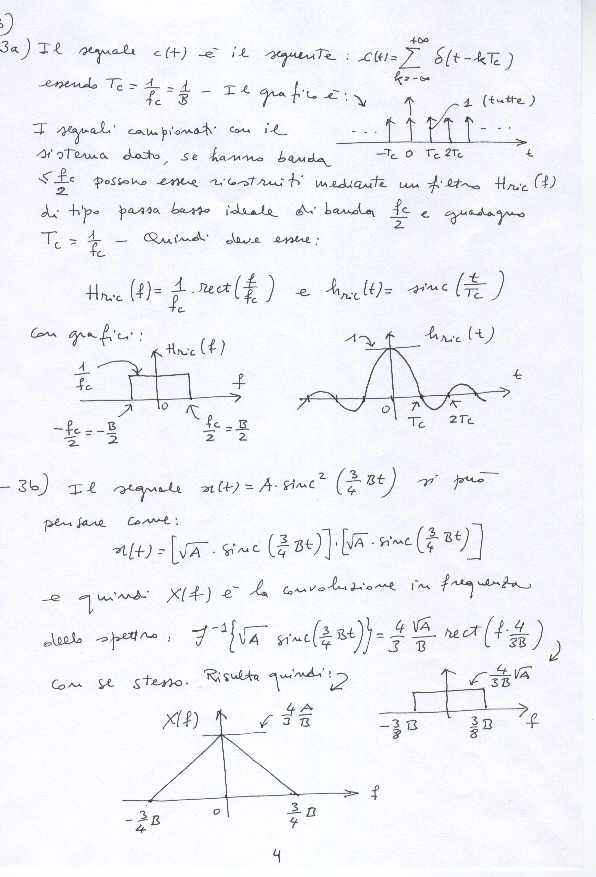 3)
3a) Il segnale c(t) è il seguente : c(t)= +∞ ∑ k=-∞ δ(t-kTc)
essendo Tc = 1/fc = 1/B - Il grafico è:
1 (tutte)
I segnali campionati con il
... ...
sistema dato, se hanno banda
-Tc 0 Tc 2Tc t
≤ fc/2 possono essere ricostruiti mediante un filtro Hric(f)
di tipo passa basso ideale di banda fc/2 e guadagno
Tc = 1/fc - Quindi deve essere:
Hric(f) = 1/fc · rect(f/fc) e hric(t) = sinc(t/Tc)
con grafici:
Hric(f) 1/fc f
-fc/2 = -B/2 0 fc/2 = B/2
1 hric(t) t
0 Tc 2Tc
- 3b) Il segnale x(t) = A · sinc² (3/4 Bt) si può
pensare come:
x(t) = [√A · sinc (3/4 Bt)] · [√A · sinc (3/4 Bt)]
e quindi X(f) è la convoluzione in frequenza
dello spettro : F⁻¹{√A sinc(3/4 Bt)} = 4/3 √A/B rect(f · 4/3B)
con se stesso. Risulta quindi:
4/3B √A
-3/8 B 3/8 B f
X(f) 4/3 A/B
-3/4 B 0 3/4 B f
4